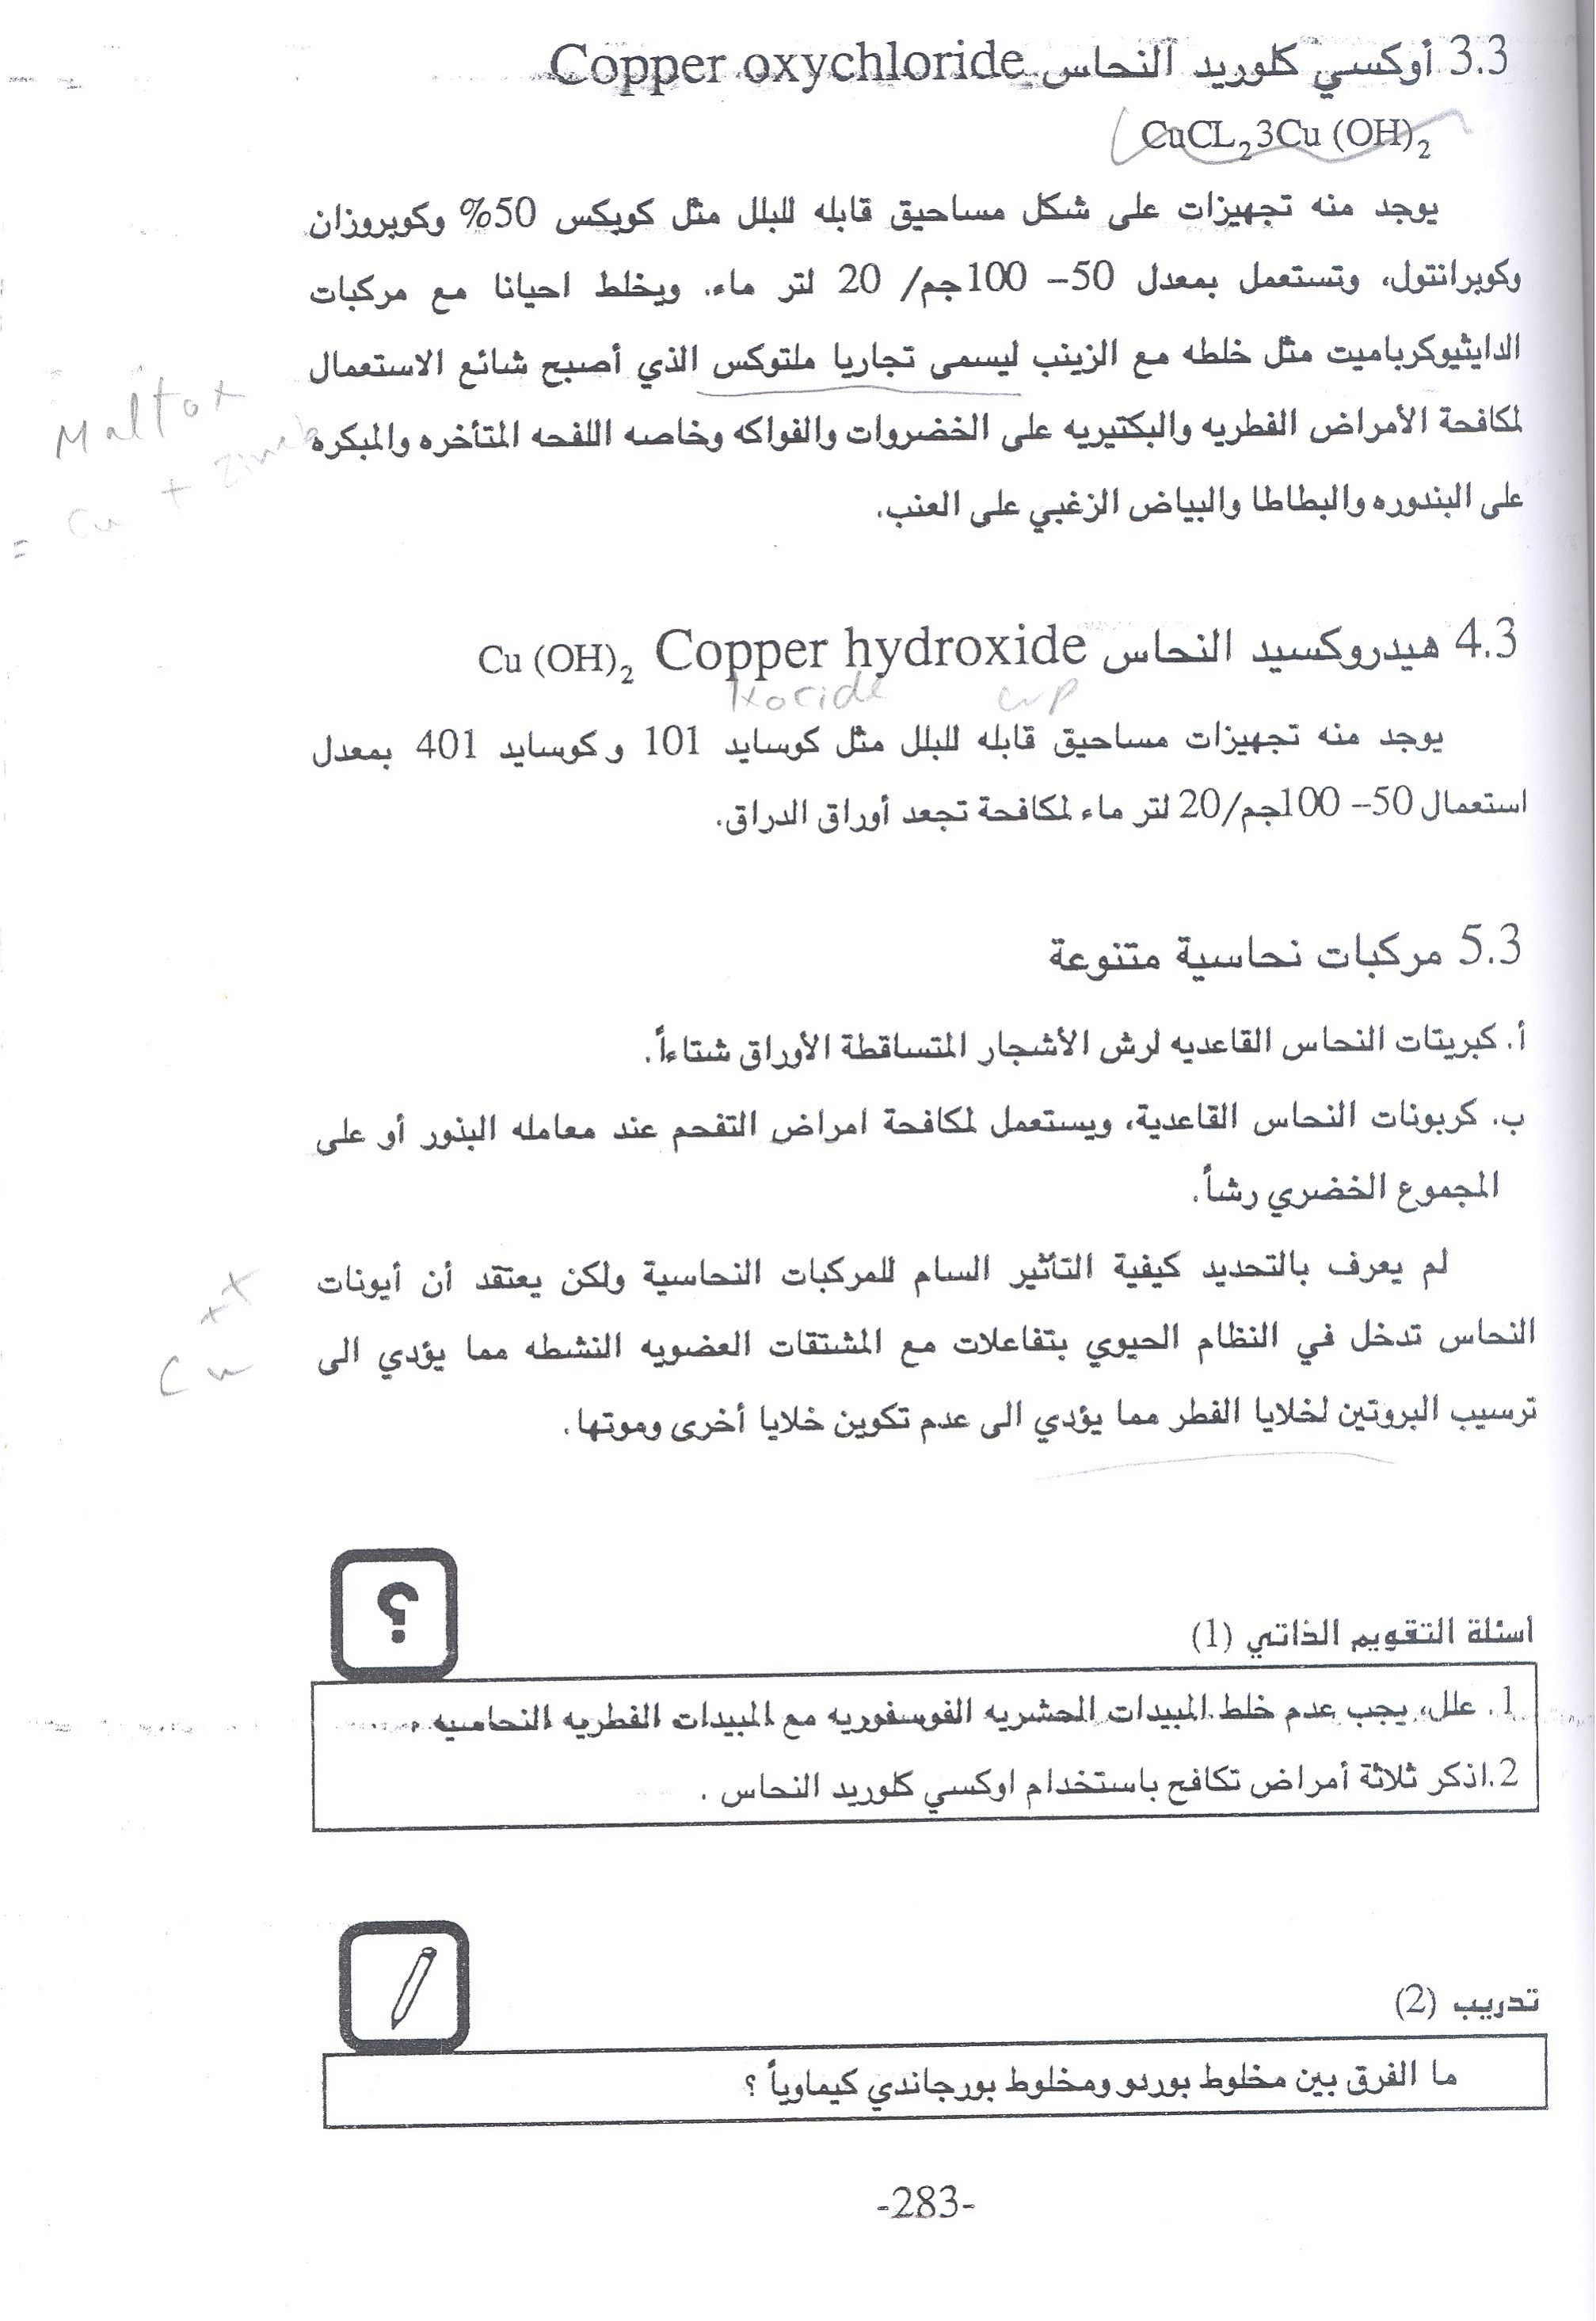 3.3 أوكسي كلوريد النحاس Copper oxychloride
CuCL₂3Cu (OH)₂
يوجد منه تجهيزات على شكل مساحيق قابله للبلل مثل كوبكس 50% وكوبروزان
وكوبرانتول، وتستعمل بمعدل 50– 100جم/ 20 لتر ماء. ويخلط احيانا مع مركبات
الدايثيوكرباميت مثل خلطه مع الزينب ليسمى تجاريا ملتوكس الذي أصبح شائع الاستعمال
لمكافحة الأمراض الفطريه والبكتيريه على الخضروات والفواكه وخاصه اللفحه المتأخره والمبكره
على البندوره والبطاطا والبياض الزغبي على العنب.
Maltox
= Cu + Zineb
4.3 هيدروكسيد النحاس Copper hydroxide Cu (OH)₂
wp
يوجد منه تجهيزات مساحيق قابله للبلل مثل كوسايد 101 و كوسايد 401 بمعدل
استعمال 50– 100جم/20 لتر ماء لمكافحة تجعد أوراق الدراق.
5.3 مركبات نحاسية متنوعة
أ. كبريتات النحاس القاعديه لرش الأشجار المتساقطة الأوراق شتاءاً.
ب. كربونات النحاس القاعدية، ويستعمل لمكافحة امراض التفحم عند معامله البذور أو على
المجموع الخضري رشاً.
لم يعرف بالتحديد كيفية التأثير السام للمركبات النحاسية ولكن يعتقد أن أيونات
النحاس تدخل في النظام الحيوي بتفاعلات مع المشتقات العضويه النشطه مما يؤدي الى
ترسيب البروتين لخلايا الفطر مما يؤدي الى عدم تكوين خلايا أخرى وموتها.
Cu ++
؟
اسئلة التقويم الذاتي (1)
1. علل، يجب عدم خلط المبيدات الحشريه الفوسفوريه مع المبيدات الفطريه النحاسيه .
2.اذكر ثلاثة أمراض تكافح باستخدام اوكسي كلوريد النحاس .
تدريب (2)
ما الفرق بين مخلوط بوردو ومخلوط بورجاندي كيماوياً ؟
-283-